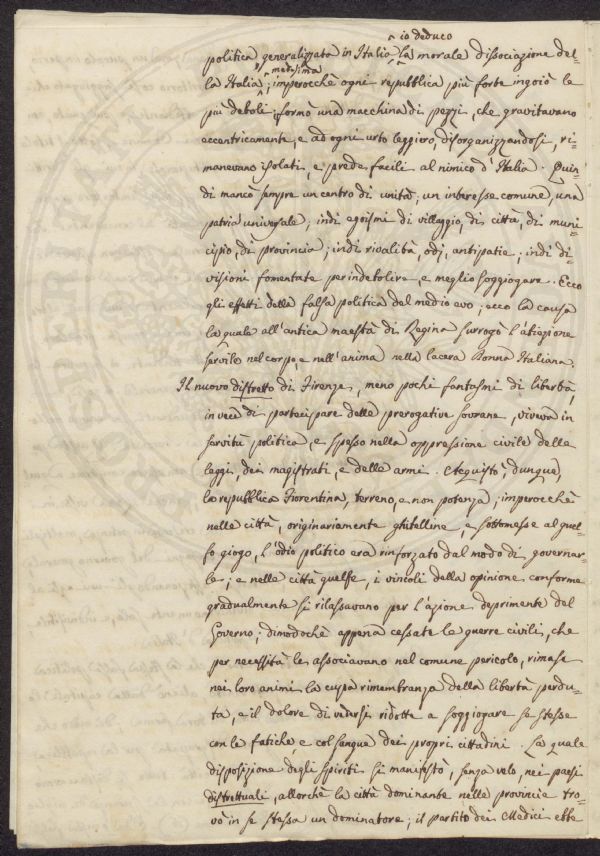 io deduco
politica generalizzata in Italia, la morale dissociazione del=
medesima
la Italia; imperocchè ogni repubblica più forte ingoiò le
più deboli; formò una macchina di pezzi, che gravitavano
eccentricamente, e ad ogni urto leggiero, disorganizzandosi, ri=
manevano isolati, e prede facili al nimico d'Italia. Quin=
di mancò sempre un centro di unità; un interesse comune, una
patria universale; indi egoismi di villaggio, di città, di muni=
cipio, di provincia; indi rivalità, odj, antipatie; indi di=
visioni fomentate per indebolire, e meglio soggiogare. Ecco
gli effetti della falsa politica del medio evo; ecco la causa
la quale all'antica maestà di Regina surrogò l'abiezione
servile nel corpo, e nell'anima nella lacera Donna Italiana.
Il nuovo distretto di Firenze, meno pochi fantasmi di libertà,
in vece di partecipare delle prerogative sovrane, viveva in
servitù politica, e spesso nella oppressione civile delle
leggi, dei magistrati, e delle armi. Acquistò, dunque,
la repubblica Fiorentina, terreno, e non potenza; imperocchè
nelle città, originariamente ghibelline, e sottomesse al guel=
fo giogo, l'odio politico era rinforzato dal modo di governar=
le; e nelle città guelfe, i vincoli della opinione conforme
gradualmente si rilassavano per l'azione deprimente del
Governo; dimodochè appena cessate le guerre civili, che
per necessità le associavano nel comune pericolo, rimase
nei loro animi la cupa rimembranza della libertà perdu=
ta, e il dolore di vedersi ridotte a soggiogare se stesse
con le fatiche e col sangue dei propri cittadini. La quale
disposizione degli spiriti si manifestò, senza velo, nei paesi
distrettuali, allorchè la città dominante nelle provincie tro=
vò in se stessa un dominatore; il partito dei Medici ebbe